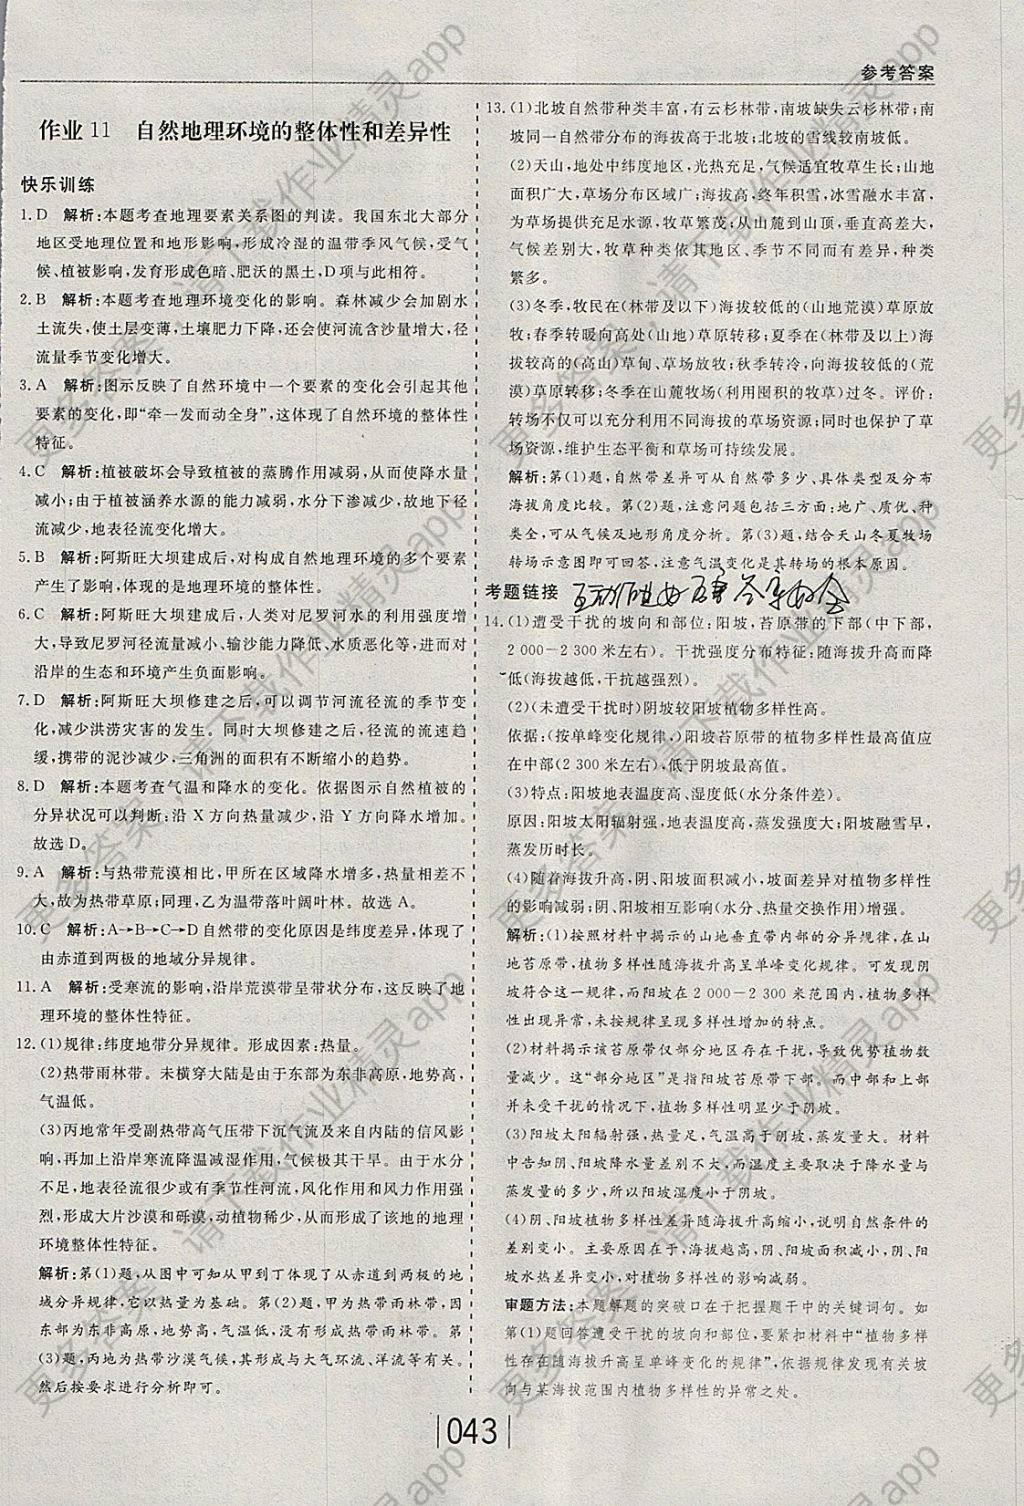 参考答案
作业 11　自然地理环境的整体性和差异性
快乐训练
1. D　解析:本题考查地理要素关系图的判读。我国东北大部分
地区受地理位置和地形影响,形成冷湿的温带季风气候,受气
候、植被影响,发育形成色暗、肥沃的黑土,D项与此相符。
2. B　解析:本题考查地理环境变化的影响。森林减少会加剧水
土流失,使土层变薄,土壤肥力下降,还会使河流含沙量增大,径
流量季节变化增大。
3. A　解析:图示反映了自然环境中一个要素的变化会引起其他
要素的变化,即“牵一发而动全身”,这体现了自然环境的整体性
特征。
4. C　解析:植被破坏会导致植被的蒸腾作用减弱,从而使降水量
减小;由于植被涵养水源的能力减弱,水分下渗减少,故地下径
流减少,地表径流变化增大。
5. B　解析:阿斯旺大坝建成后,对构成自然地理环境的多个要素
产生了影响,体现的是地理环境的整体性。
6. C　解析:阿斯旺大坝建成后,人类对尼罗河水的利用强度增
大,导致尼罗河径流量减小、输沙能力降低、水质恶化等,进而对
沿岸的生态和环境产生负面影响。
7. D　解析:阿斯旺大坝修建之后,可以调节河流径流的季节变
化,减少洪涝灾害的发生。同时大坝修建之后,径流的流速趋
缓,携带的泥沙减少,三角洲的面积有不断缩小的趋势。
8. D　解析:本题考查气温和降水的变化。依据图示自然植被的
分异状况可以判断:沿 X 方向热量减少,沿 Y 方向降水增加。
故选 D。
9. A　解析:与热带荒漠相比,甲所在区域降水增多,热量相差不
大,故为热带草原;同理,乙为温带落叶阔叶林。故选 A。
10. C　解析:A→B→C→D自然带的变化原因是纬度差异,体现了
由赤道到两极的地域分异规律。
11. A　解析:受寒流的影响,沿岸荒漠带呈带状分布,这反映了地
理环境的整体性特征。
12. (1)规律:纬度地带分异规律。形成因素:热量。
(2)热带雨林带。未横穿大陆是由于东部为东非高原,地势高,
气温低。
(3)丙地常年受副热带高气压带下沉气流及来自内陆的信风影
响,再加上沿岸寒流降温减湿作用,气候极其干旱。由于水分
不足,地表径流很少或有季节性河流,风化作用和风力作用强
烈,形成大片沙漠和砾漠,动植物稀少,从而形成了该地的地理
环境整体性特征。
解析:第(1)题,从图中可知从甲到丁体现了从赤道到两极的地
域分异规律,它以热量为基础。第(2)题,甲为热带雨林带,因
东部为东非高原,地势高,气温低,没有形成热带雨林带。第
(3)题,丙地为热带沙漠气候,其形成与大气环流、洋流等有关。
然后按要求进行分析即可。
13. (1)北坡自然带种类丰富,有云杉林带,南坡缺失云杉林带;南
坡同一自然带分布的海拔高于北坡;北坡的雪线较南坡低。
(2)天山,地处中纬度地区,光热充足,气候适宜牧草生长;山地
面积广大,草场分布区域广;海拔高,终年积雪,冰雪融水丰富,
为草场提供充足水源,牧草繁茂;从山麓到山顶,垂直高差大,
气候差别大,牧草种类依其地区、季节不同而有差异,种类
繁多。
(3)冬季,牧民在(林带及以下)海拔较低的(山地荒漠)草原放
牧;春季转暖向高处(山地)草原转移;夏季在(林带及以上)海
拔较高的(高山)草甸、草场放牧;秋季转冷,向海拔较低的(荒
漠)草原转移;冬季在山麓牧场(利用囤积的牧草)过冬。评价:
转场不仅可以充分利用不同海拔的草场资源;同时也保护了草
场资源,维护生态平衡和草场可持续发展。
解析:第(1)题,自然带差异可从自然带多少、具体类型及分布
海拔角度比较。第(2)题,注意问题包括三方面:地广、质优、种
类全,可从气候及地形角度分析。第(3)题,结合天山冬夏牧场
转场示意图即可回答,注意气温变化是其转场的根本原因。
考题链接
14. (1)遭受干扰的坡向和部位:阳坡,苔原带的下部(中下部,
2 000－2 300 米左右)。干扰强度分布特征:随海拔升高而降
低(海拔越低,干扰越强烈)。
(2)(未遭受干扰时)阴坡较阳坡植物多样性高。
依据:(按单峰变化规律,)阳坡苔原带的植物多样性最高值应
在中部(2 300 米左右),低于阴坡最高值。
(3)特点:阳坡地表温度高、湿度低(水分条件差)。
原因:阳坡太阳辐射强,地表温度高,蒸发强度大;阳坡融雪早,
蒸发历时长。
(4)随着海拔升高,阴、阳坡面积减小,坡面差异对植物多样性
的影响减弱;阴、阳坡相互影响(水分、热量交换作用)增强。
解析:(1)按照材料中揭示的山地垂直带内部的分异规律,在山
地苔原带,植物多样性随海拔升高呈单峰变化规律。可发现阴
坡符合这一规律,而阳坡在 2 000－2 300 米范围内,植物多样
性出现异常,未按规律呈现多样性增加的特点。
(2)材料揭示该苔原带仅部分地区存在干扰,导致优势植物数
量减少。这“部分地区”是指阳坡苔原带下部。而中部和上部
并未受干扰的情况下,植物多样性明显少于阴坡。
(3)阳坡太阳辐射强,热量足,气温高于阴坡,蒸发量大。材料
中告知阴、阳坡降水量差别不大,而湿度主要取决于降水量与
蒸发量的多少,所以阳坡湿度小于阴坡。
(4)阴、阳坡植物多样性差异随海拔升高缩小,说明自然条件的
差别变小。主要原因在于,海拔越高,阴、阳坡面积减小,阴、阳
坡水热差异变小,对植物多样性的影响减弱。
审题方法:本题解题的突破口在于把握题干中的关键词句。如
第(1)题回答遭受干扰的坡向和部位,要紧扣材料中“植物多样
性存在随海拔升高呈单峰变化的规律”,依据规律发现有关坡
向与某海拔范围内植物多样性的异常之处。
043
更多答案,请下载作业精灵app